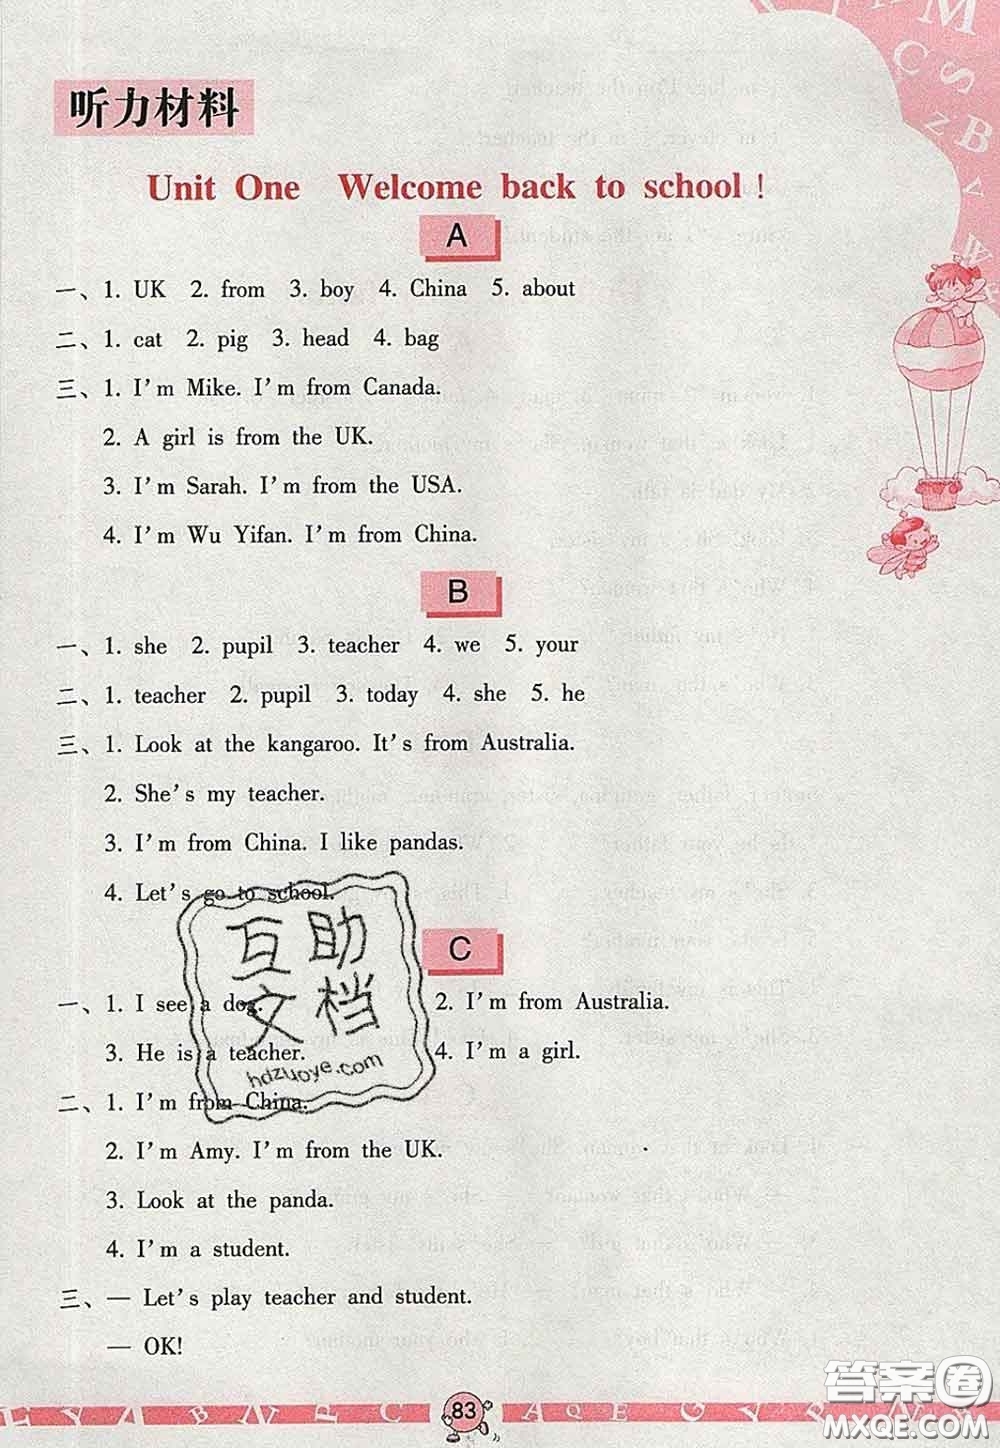 听力材料
Unit One Welcome back to school!
A
一、1. UK 2. from 3. boy 4. China 5. about
二、1. cat 2. pig 3. head 4. bag
三、1. I'm Mike. I'm from Canada.
2. A girl is from the UK.
3. I'm Sarah. I'm from the USA.
4. I'm Wu Yifan. I'm from China.
B
一、1. she 2. pupil 3. teacher 4. we 5. your
二、1. teacher 2. pupil 3. today 4. she 5. he
三、1. Look at the kangaroo. It's from Australia.
2. She's my teacher.
3. I'm from China. I like pandas.
4. Let's go to school.
C
一、1. I see a dog. 2. I'm from Australia.
3. He is a teacher. 4. I'm a girl.
二、1. I'm from China.
2. I'm Amy. I'm from the UK.
3. Look at the panda.
4. I'm a student.
三、— Let's play teacher and student.
— OK!
互助
文档
hdzuoye.com
83
答案圈
MXQE.COM